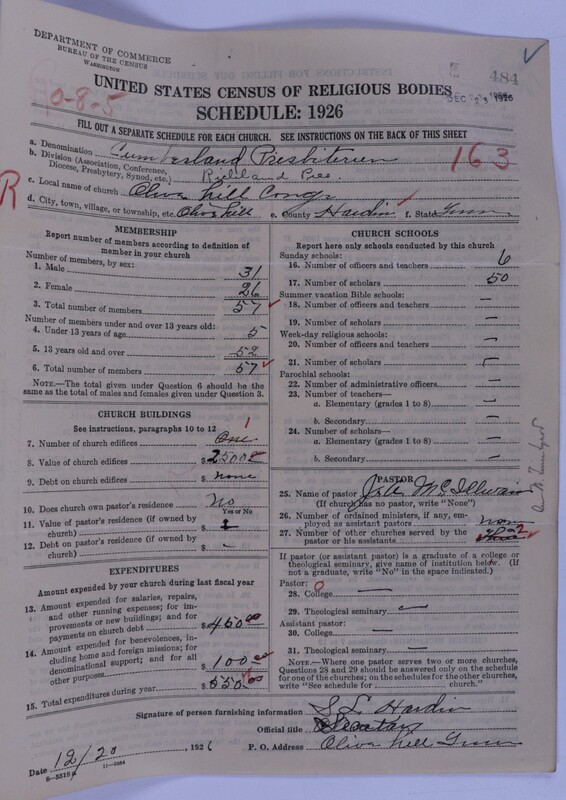 DEPARTMENT OF COMMERCE
BUREAU OF THE CENSUS
WASHINGTON
484
DEC 23 1926
0-8-5
UNITED STATES CENSUS OF RELIGIOUS BODIES
SCHEDULE: 1926
FILL OUT A SEPARATE SCHEDULE FOR EACH CHURCH. SEE INSTRUCTIONS ON THE BACK OF THIS SHEET
a. Denomination Cumberland Presbiterien
163
b. Division (Association, Conference, Diocese, Presbytery, Synod, etc.) Richland Pres.
R
c. Local name of church Olive Hill Congr
d. City, town, village, or township, etc. Olive Hill e. County Hardin f. State Tenn.
MEMBERSHIP
Report number of members according to definition of
member in your church
Number of members, by sex:
1. Male 31
2. Female 26
3. Total number of members 57
Number of members under and over 13 years old:
4. Under 13 years of age 5
5. 13 years old and over 52
6. Total number of members 57
NOTE.—The total given under Question 6 should be the
same as the total of males and females given under Question 3.
CHURCH BUILDINGS
See instructions, paragraphs 10 to 12
1
7. Number of church edifices One
8. Value of church edifices $ 2500
9. Debt on church edifices $ none
10. Does church own pastor's residence? No
Yes or No
11. Value of pastor's residence (if owned by
church) $
12. Debt on pastor's residence (if owned by
church) $ -
EXPENDITURES
Amount expended by your church during last fiscal year
13. Amount expended for salaries, repairs,
and other running expenses; for im-
provements or new buildings; and for
payments on church debt $ 450.00
14. Amount expended for benevolences, in-
cluding home and foreign missions; for
denominational support; and for all
other purposes $ 100.00
15. Total expenditures during year $ 550.00
CHURCH SCHOOLS
Report here only schools conducted by this church
Sunday schools:
16. Number of officers and teachers 6
17. Number of scholars 50
Summer vacation Bible schools:
18. Number of officers and teachers —
19. Number of scholars —
Week-day religious schools:
20. Number of officers and teachers —
21. Number of scholars —
Parochial schools:
22. Number of administrative officers —
23. Number of teachers—
a. Elementary (grades 1 to 8) —
b. Secondary —
24. Number of scholars—
a. Elementary (grades 1 to 8) —
b. Secondary —
PASTOR
25. Name of pastor J. A. McIllwain
(If church has no pastor, write "None")
26. Number of ordained ministers, if any, em-
ployed as assistant pastors none
27. Number of other churches served by the
pastor or his assistants 2
If pastor (or assistant pastor) is a graduate of a college or
theological seminary, give name of institution below. (If
not a graduate, write "No" in the space indicated.)
Pastor: 0
28. College —
29. Theological seminary —
Assistant pastor:
30. College —
31. Theological seminary —
NOTE.—Where one pastor serves two or more churches,
Questions 28 and 29 should be answered only on the schedule
for one of the churches; on the schedules for the other churches,
write "See schedule for church."
Signature of person furnishing information S. L. Hardin
Official title Secretary
Date 12/20, 1926 P. O. Address Olive Hill Tenn
11—9984